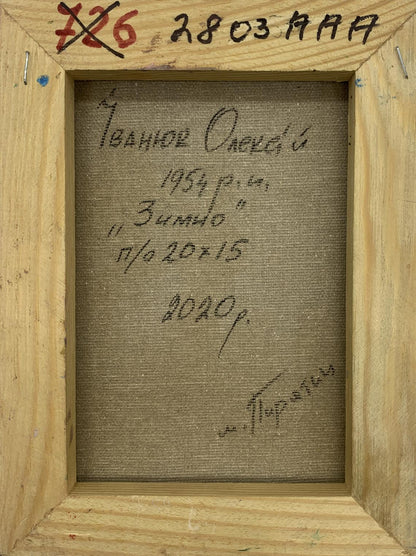 726 2803 AAA
Іванюк Олексій
1954 р.н.
„Зимно”
п/о 20x15
2020р.
м. Пирятин